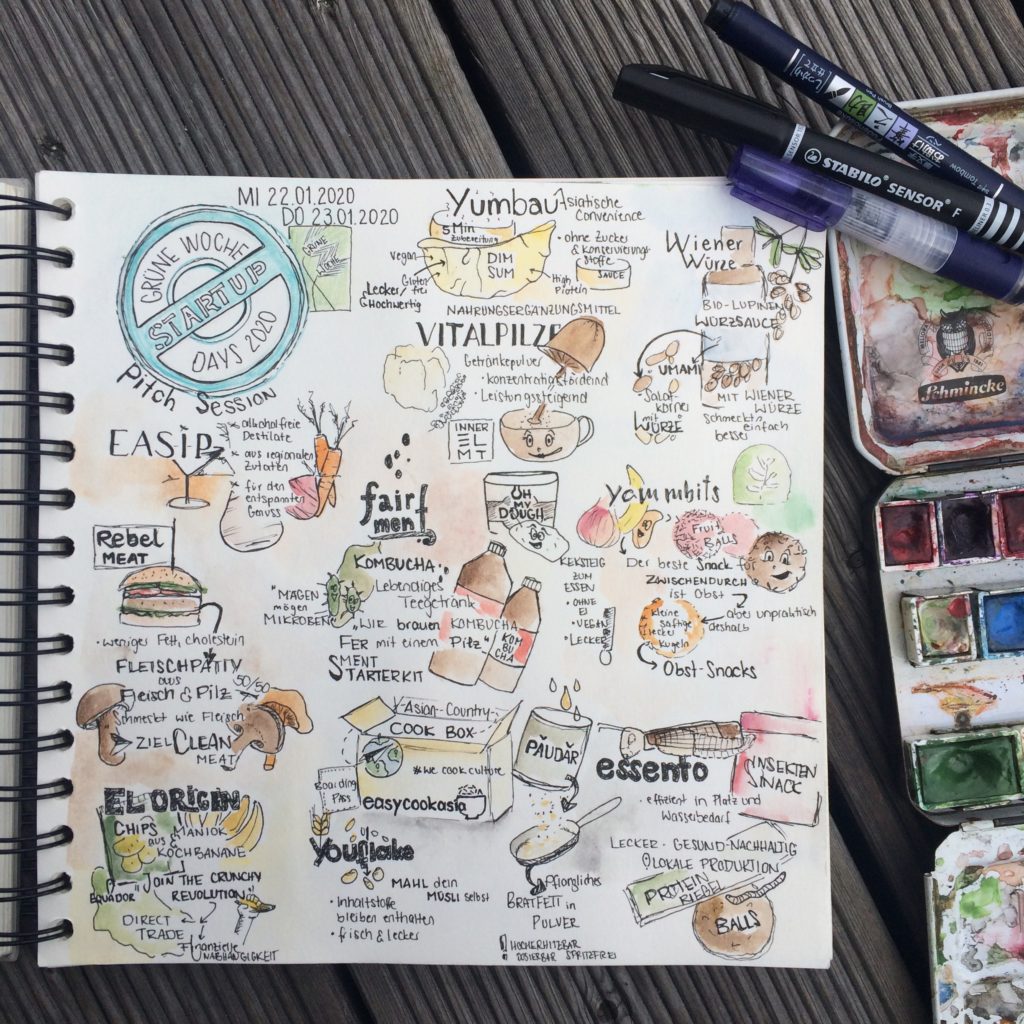 MI 22.01.2020
DO 23.01.2020
GRÜNE WOCHE
STARTUP
DAYS 2020
GRÜNE WOCHE
Pitch Session
Yumbau
Asiatische
Convenience
5 Min
Zubereitung
DIM
SUM
Vegan
Gluten
frei
Lecker
& Hochwertig
High
Protein
• ohne Zucker
& Konservierungs
Stoffe
SAUCE
Wiener
Würze
BIO-LUPINEN
WÜRZSAUCE
UMAMI
Salat-
körner
mit
WÜRZE
MIT WIENER
WÜRZE
Schmeckt's
einfach
besser
NAHRUNGSERGÄNZUNGSMITTEL
VITALPILZE
Getränkepulver
• konzentrationsfördernd
• Leistungssteigernd
INNER
ELMT
EASIP
alkoholfreie
Destilate
aus regionalen
Zutaten
für den
entspannten
Genuss
fairment
KOMBUCHA
Lebendiges
Teegetränk
"MAGEN
mögen
MIKROBEN"
"WIR brauen
mit einem
Pilz"
FERMENT
STARTERKIT
KOMBUCHA
KOMBUCHA
OH
MY
DOUGH
KEKSTEIG
ZUM
ESSEN
• OHNE
EI
• VEGAN
• LECKER
yammbits
Fruit
BALLS
Der beste Snack für
ZWISCHENDURCH
ist Obst
aber unpraktisch
deshalb
kleine
saftige
lecker
Kugeln
Obst-Snacks
Rebel
MEAT
• weniger Fett, cholestein
FLEISCHPATTY
aus
Fleisch & Pilz 50/50
Schmeckt wie Fleisch
ZIEL CLEAN
MEAT
Asian-Country-
COOK BOX
#we cook culture
Boarding
Pass
easycookasia
PÄUDÄR
Pflanzliches
BRATFETT in
PULVER
! HOCHERHITZBAR
DOSIERBAR SPRITZFREI
essento
INSEKTEN
SNACK
• effizient in Platz und
Wasserbedarf
LECKER - GESUND-NACHHALTIG
LOKALE PRODUKTION
PROTEIN
RIEGEL
BALLS
EL ORIGEN
CHIPS
aus
MANIOK
& KOCHBANANE
EQUADOR
"JOIN THE CRUNCHY
REVOLUTION"
DIRECT
TRADE
Finanzielle
UNABHÄNGIGKEIT
Youflake
MAHL dein
MÜSLI selbst
• Inhaltstoffe
bleiben enthalten
• frisch & lecker
STABILO SENSOR F
Tombow
Schmincke